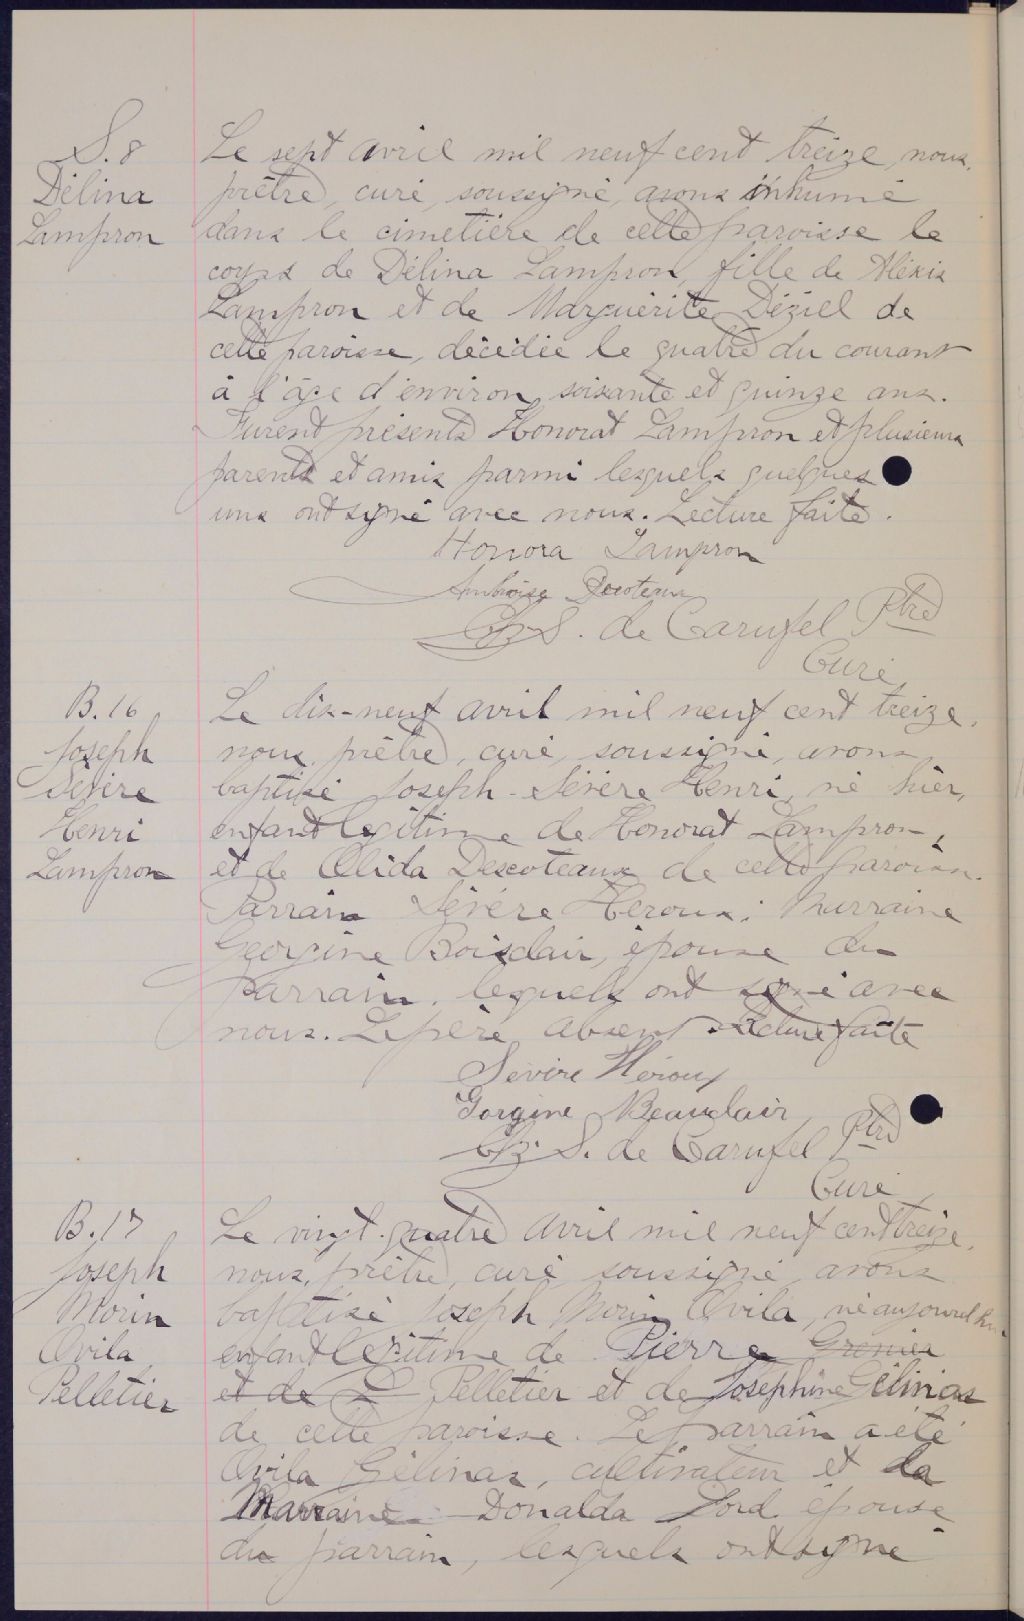 S. 8
Délina
Lampron
Le sept avril mil neuf cent treize, nous,
prêtre, curé, soussigné, avons inhumé
dans le cimetière de cette paroisse le
corps de Délina Lampron, fille de Alexis
Lampron et de Marguérite Déziel de
cette paroisse, décédée le quatre du courant
à l'âge d'environ soixante et quinze ans.
Furent présents Honorat Lampron et plusieurs
parents et amis parmi lesquels quelques
uns ont signé avec nous. Lecture faite.
Honora Lampron
Ambroise Decoteau
S. de Carufel Ptre
Curé
B. 16
Joseph
Sévère
Henri
Lampron
Le dix-neuf avril mil neuf cent treize,
nous, prêtre, curé, soussigné, avons
baptisé Joseph-Sévère Henri, né hier,
enfant légitime de Honorat Lampron,
et de Olida Descoteaux de cette paroisse.
Parrain Sévère Héroux; Marraine
Georgine Boisclair, épouse du
parrain, lesquels ont signé avec
nous. Le père absent. Lecture faite
Sévère Héroux
Gorgine Beauclair
S. de Carufel Ptre
Curé
B. 17
Joseph
Morin
Ovila
Pelletier
Le vingt-quatre avril mil neuf cent treize,
nous, prêtre, curé soussigné avons
baptisé Joseph Morin Ovila, né aujourd'hui
enfant légitime de Pierre Grenier
et de Pelletier et de Joséphine Gélinas
de cette paroisse. Le parrain a été
Ovila Gélinas, cultivateur et la
Marraine Donalda Lord épouse
du parrain, lesquels ont signé